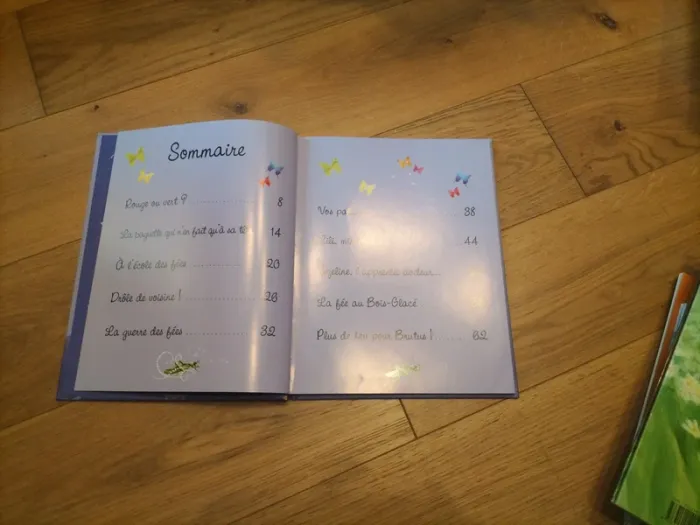 Sommaire
Rouge ou vert ? 8
La baguette qui n'en fait qu'à sa 14
À l'école des fées 20
Drôle de voisine ! 26
La guerre des fées 32
Vos 38
44
La fée au Bois-Glacé
Plus de bon pour Brutus ! 62